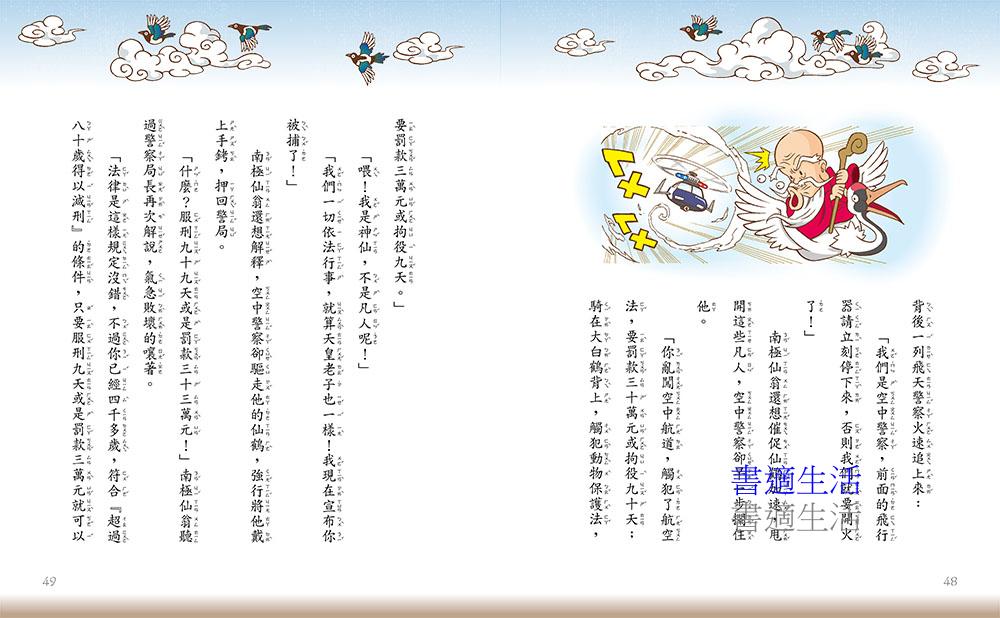 背後一列飛天警察火速追上來：
「我們是空中警察，前面的飛行
器請立刻停下來，否則我們就要開火
了！」
南極仙翁還想催促仙鶴加速，甩
開這些凡人，空中警察卻早一步攔住
他。
「你亂闖空中航道，觸犯了航空
法，要罰款三十萬元或拘役九十天；
騎在大白鶴背上，觸犯動物保護法，
書適生活
書適生活
48
要罰款三萬元或拘役九天。」
「喂！我是神仙，不是凡人呢！」
「我們一切依法行事，就算天皇老子也一樣！我現在宣布你
被捕了！」
南極仙翁還想解釋，空中警察卻驅走他的仙鶴，強行將他戴
上手銬，押回警局。
「什麼？服刑九十九天或是罰款三十三萬元！」南極仙翁聽
過警察局長再次解說，氣急敗壞的嚷著。
「法律是這樣規定沒錯，不過你已經四千多歲，符合『超過
八十歲得以減刑』的條件，只要服刑九天或是罰款三萬元就可以
49